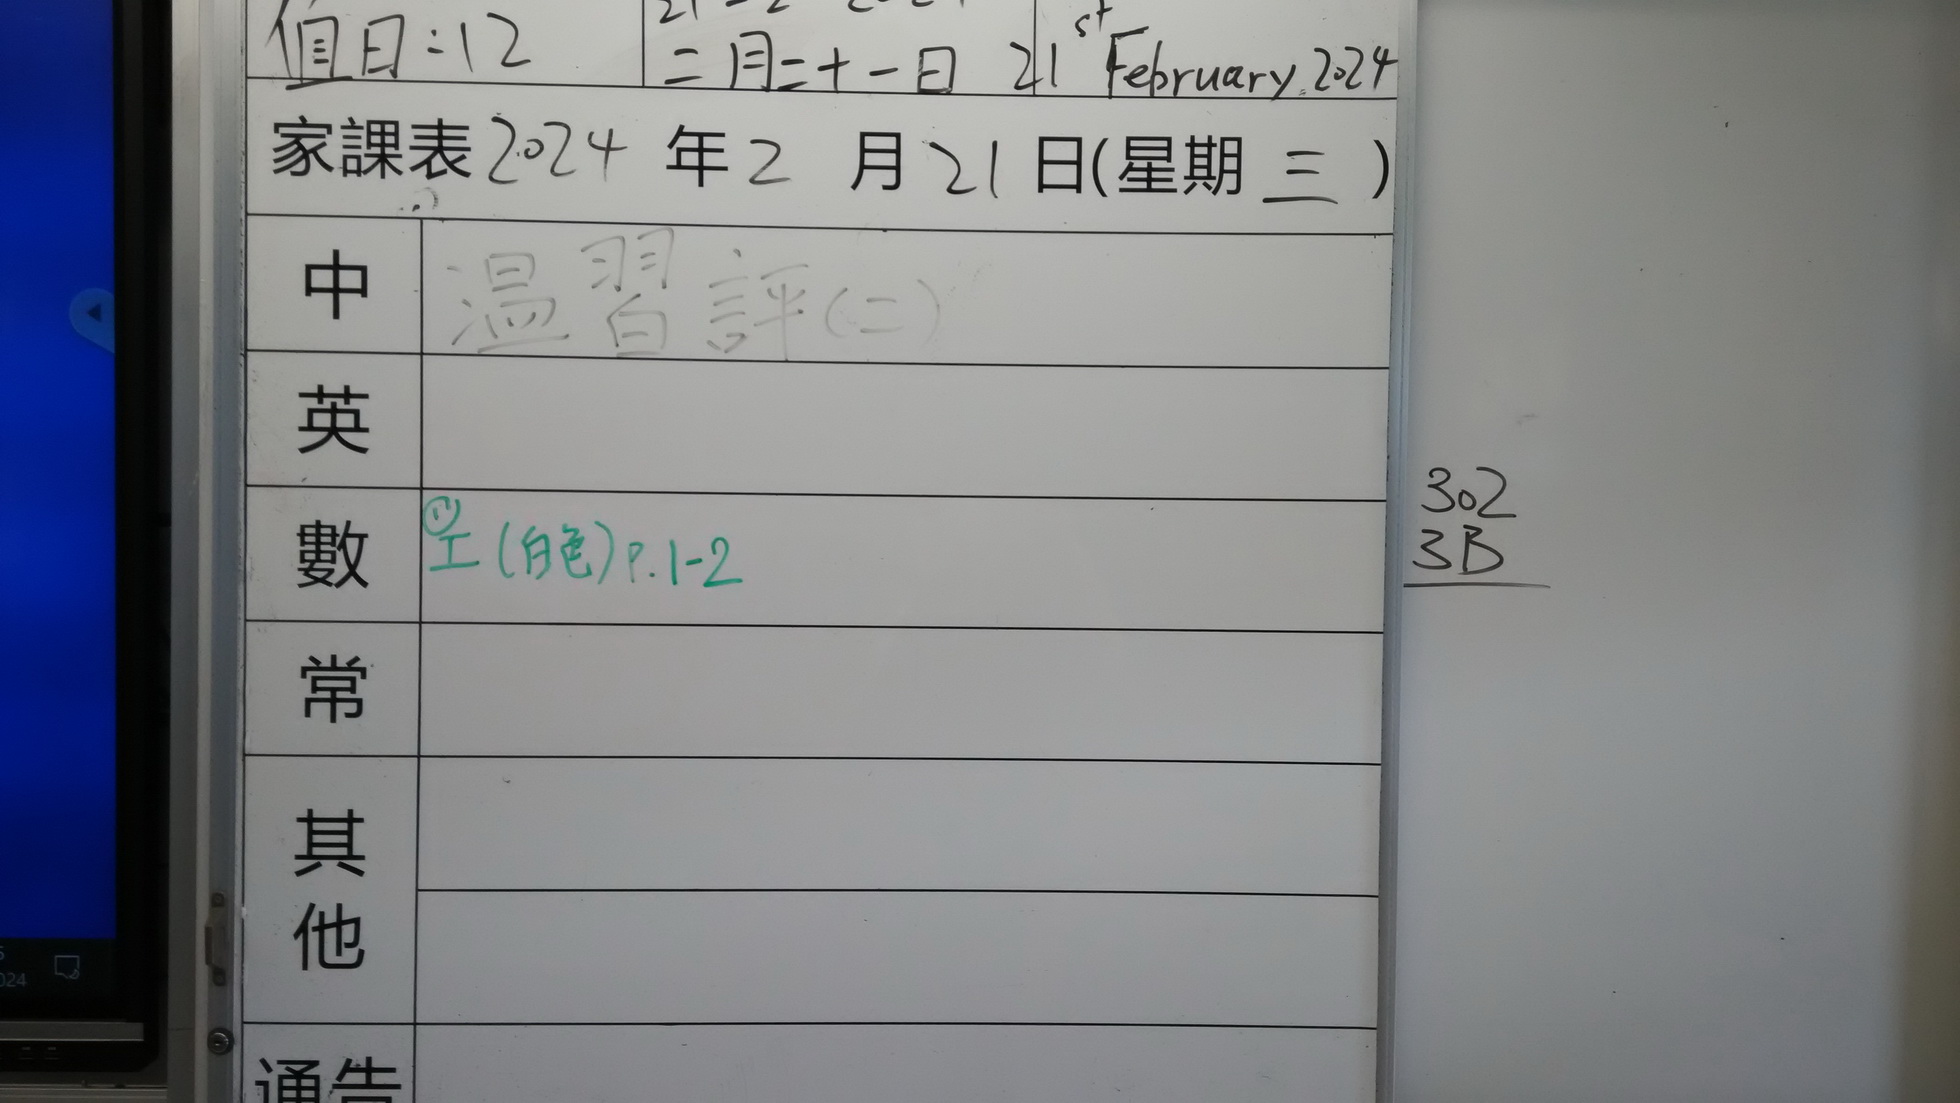 值日:12
二月二十一日
21st February, 2024
家課表 2024 年 2 月 21 日(星期 三 )
中 温習評(二)
英
數 工(白色)P.1-2
常
其他
通告
302
3B
024